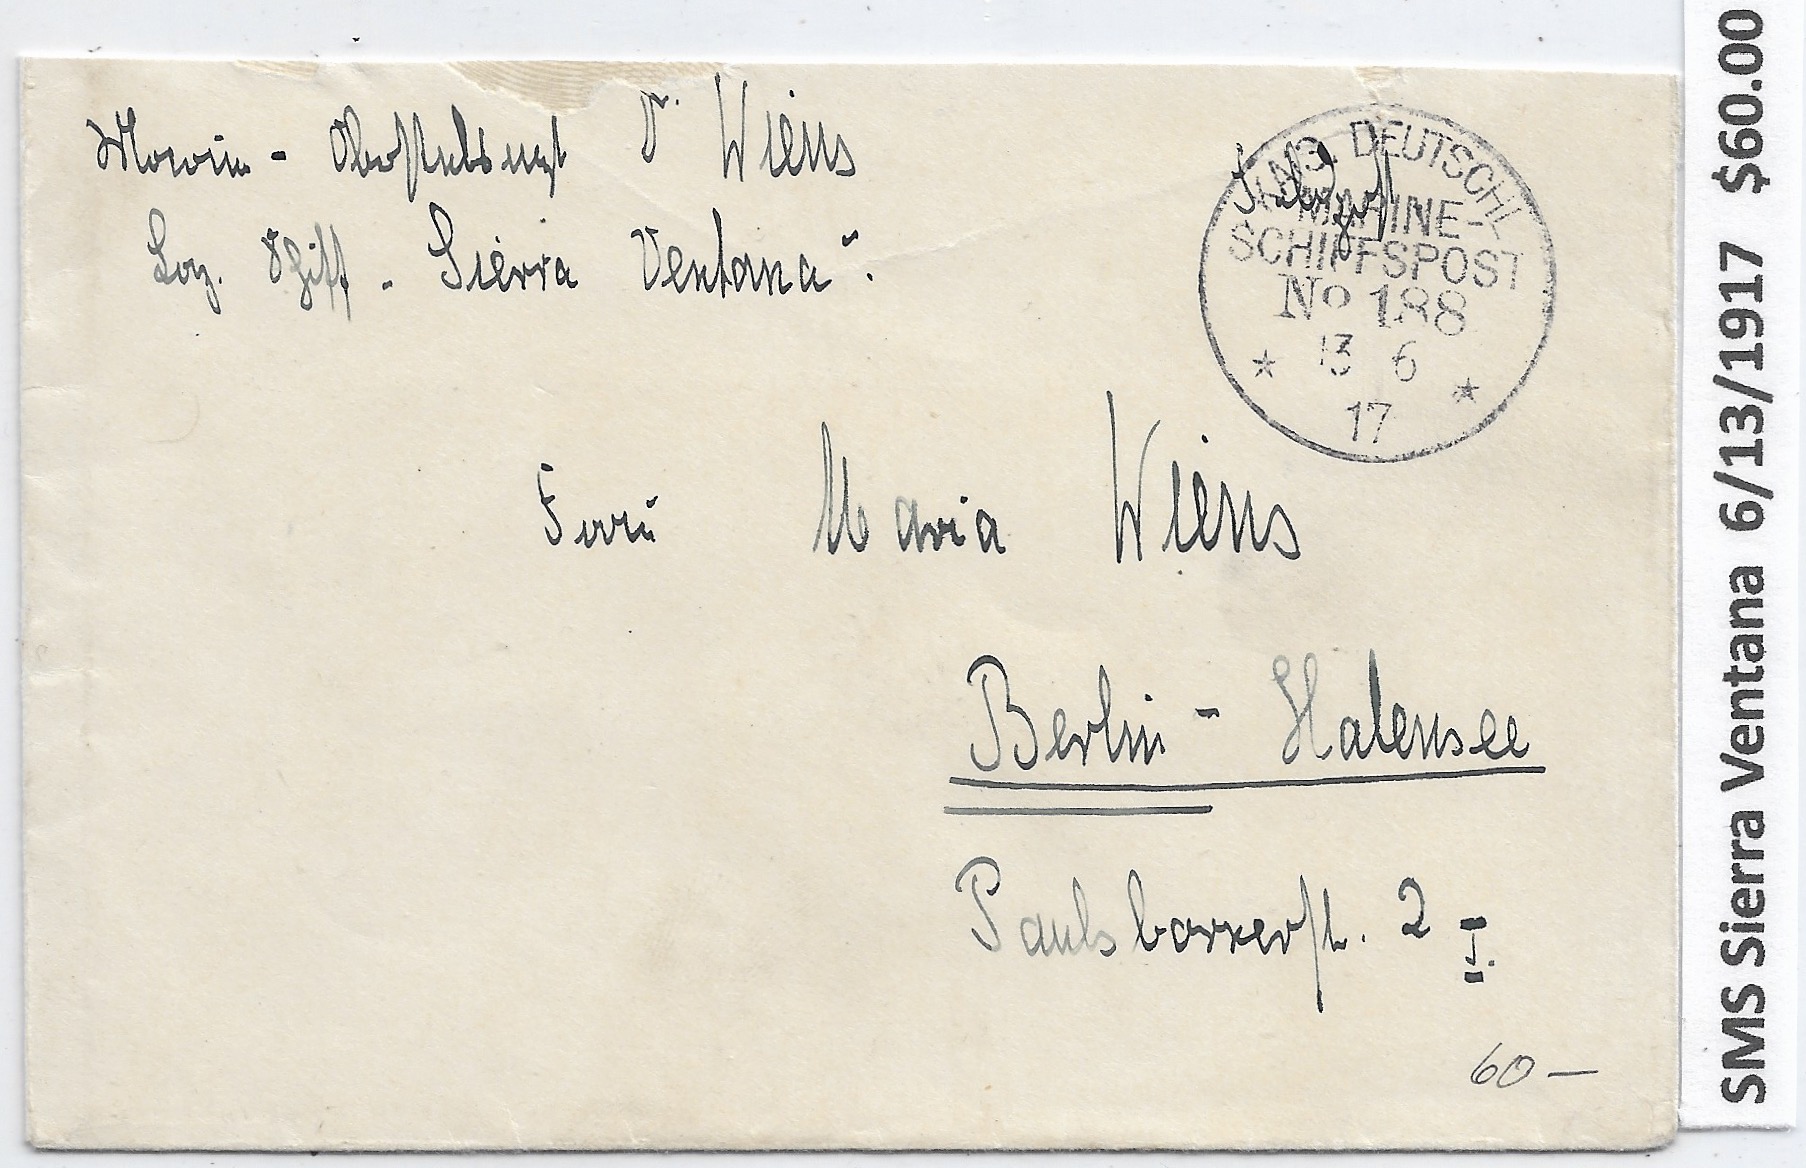 Marine-Oberstabsarzt Dr. Wiens
Laz. Schiff. "Sierra Ventana".
Feldpost
KAIS. DEUTSCHE
MARINE-
SCHIFFSPOST
No 188
13 6
17
Frau Maria Wiens
Berlin-Halensee
Paulsbornerstr. 2 I.
60 —
SMS Sierra Ventana 6/13/1917 $60.00